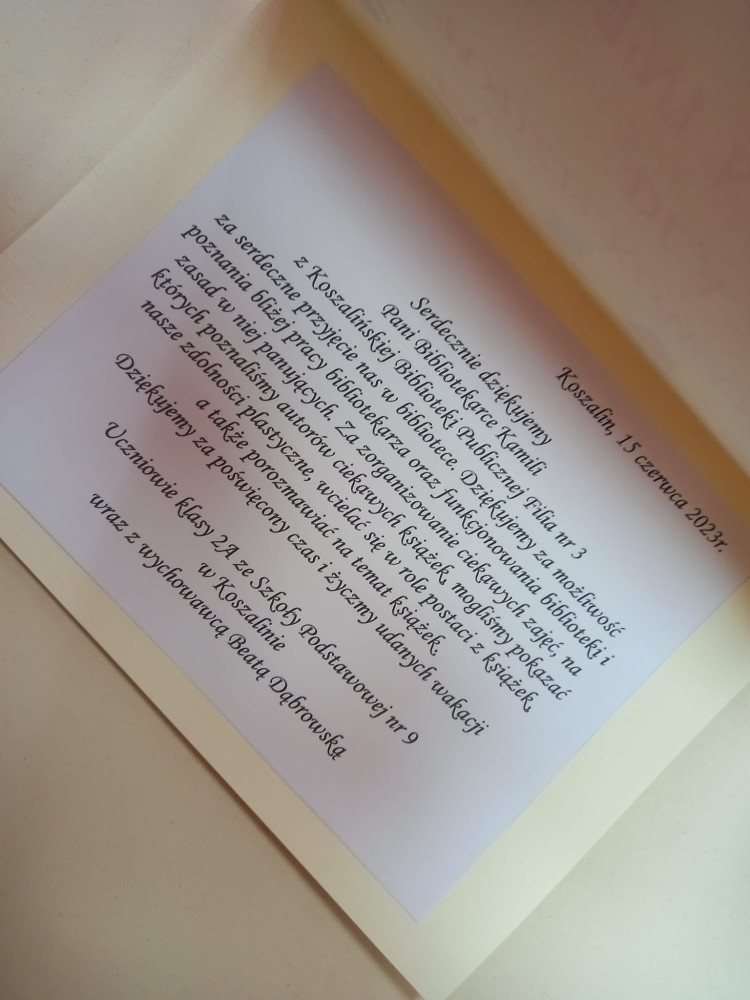 Koszalin, 15 czerwca 2023r.
Serdecznie dziękujemy
Pani Bibliotekarce Kamili
z Koszalińskiej Biblioteki Publicznej Filia nr 3
za serdeczne przyjęcie nas w bibliotece. Dziękujemy za możliwość
poznania bliżej pracy bibliotekarza oraz funkcjonowania biblioteki i
zasad w niej panujących. Za zorganizowanie ciekawych zajęć, na
których poznaliśmy autorów ciekawych książek, mogliśmy pokazać
nasze zdolności plastyczne, wcielać się w role postaci z książek,
a także porozmawiać na temat książek.
Dziękujemy za poświęcony czas i życzmy udanych wakacji
Uczniowie klasy 2A ze Szkoły Podstawowej nr 9
w Koszalinie
wraz z wychowawcą Beatą Dąbrowską